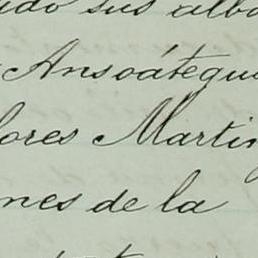 ido sus alba
Ansoátegui
lores Martin
nes de la